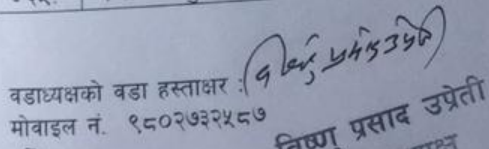 वडाध्यक्षको वडा हस्ताक्षर :
मोबाइल नं. ९८०२७३२५८७
विष्णु प्रसाद उप्रेती